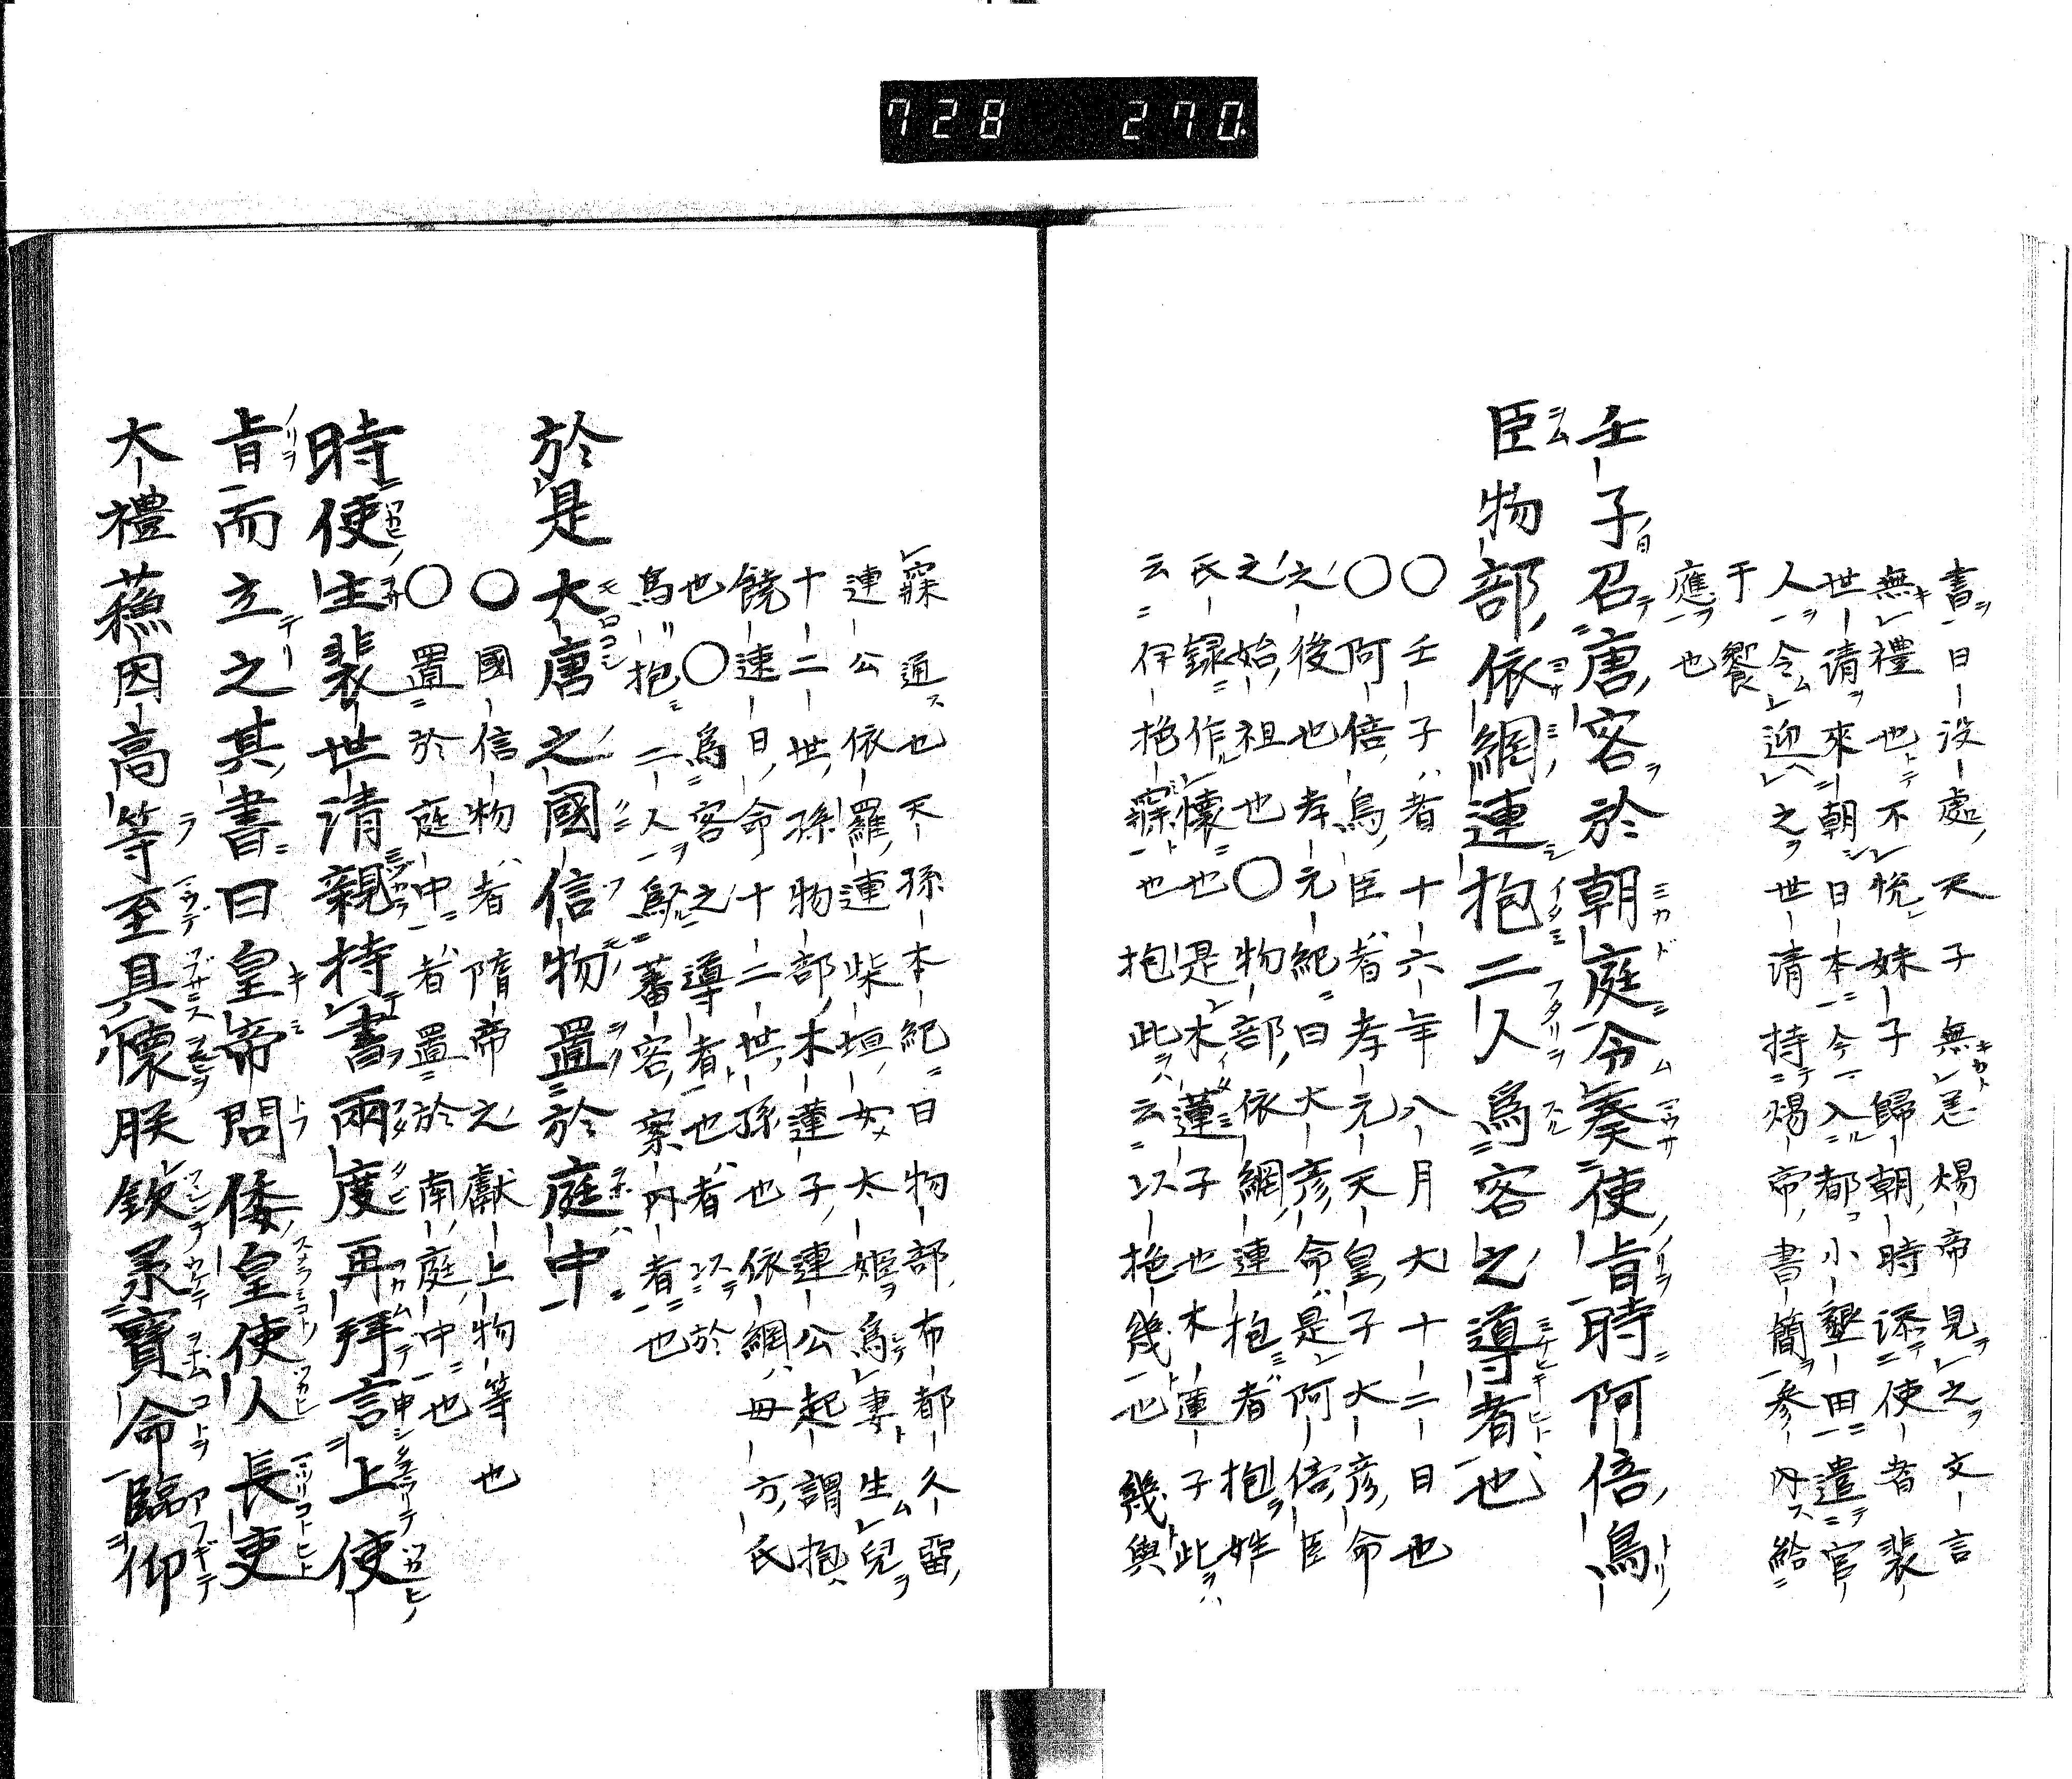 728 270
書曰没處天子無恙煬帝見之文言
無禮也不悦妹子歸朝時添使者裴
世清來朝日本今入都小墾田遣官
人令迎之世清持煬帝書簡參內給
于饗
應也
壬子召唐客於朝庭令奏使旨時阿倍鳥
臣物部依網連抱二人為客之導者也
〇壬子者十六年八月大十二日也
〇阿倍鳥臣者孝元天皇子大彦命
之後也孝元紀曰大彦命是阿倍臣
之始祖也〇物部依網連抱者抱姓
氏録作懷也是木蓮子也木蓮子此
云伊抱寐也抱此云以抱幾也幾與
寐通也天孫本紀曰物部布都久留
連公依羅連柴垣女太姫為妻生兒
十二世孫物部木蓮子連公起謂抱
饒速日命十二世孫也依網母方氏
也〇為客之導者也者以於
鳥抱二人為蕃客案內者也
於是大唐之國信物置於庭中
〇國信物者隋帝之獻上物等也
〇置於庭中者置於南庭中也
時使主裴世清親持書兩度再拜言上使
旨而立之其書曰皇帝問倭皇使人長吏
大禮蘓因高等至具懷朕欽承寶命臨仰